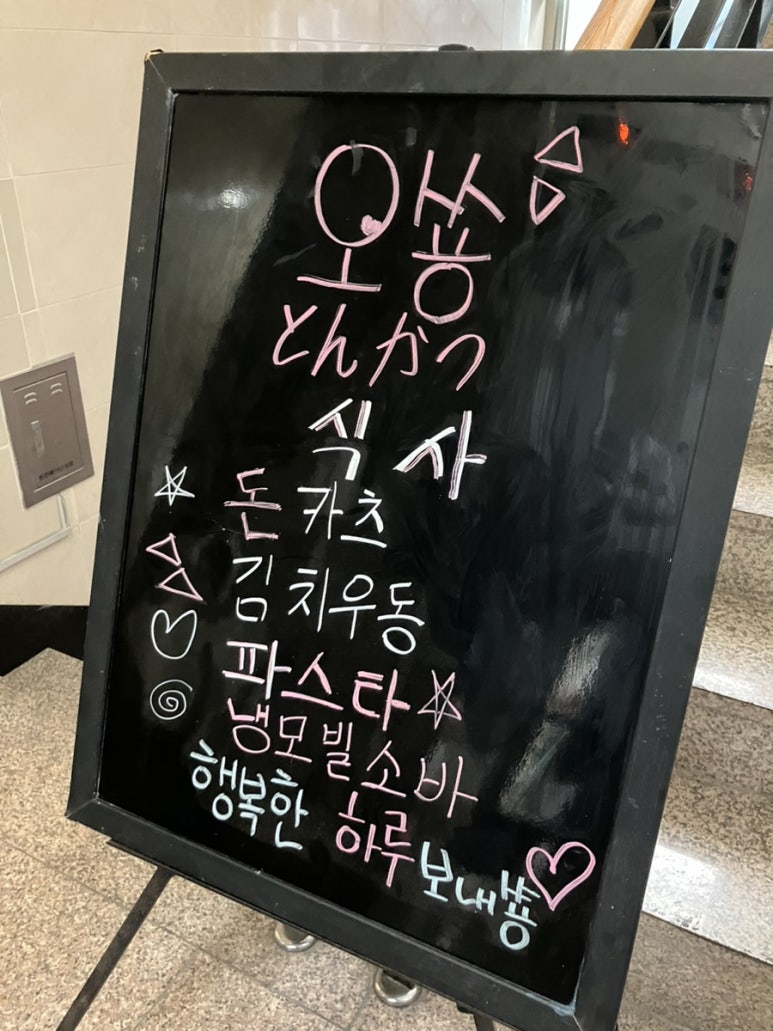 오쑝
とんかつ
식사
돈카츠
김치우동
파스타
냉모빌소바
행복한 하루 보내쑝